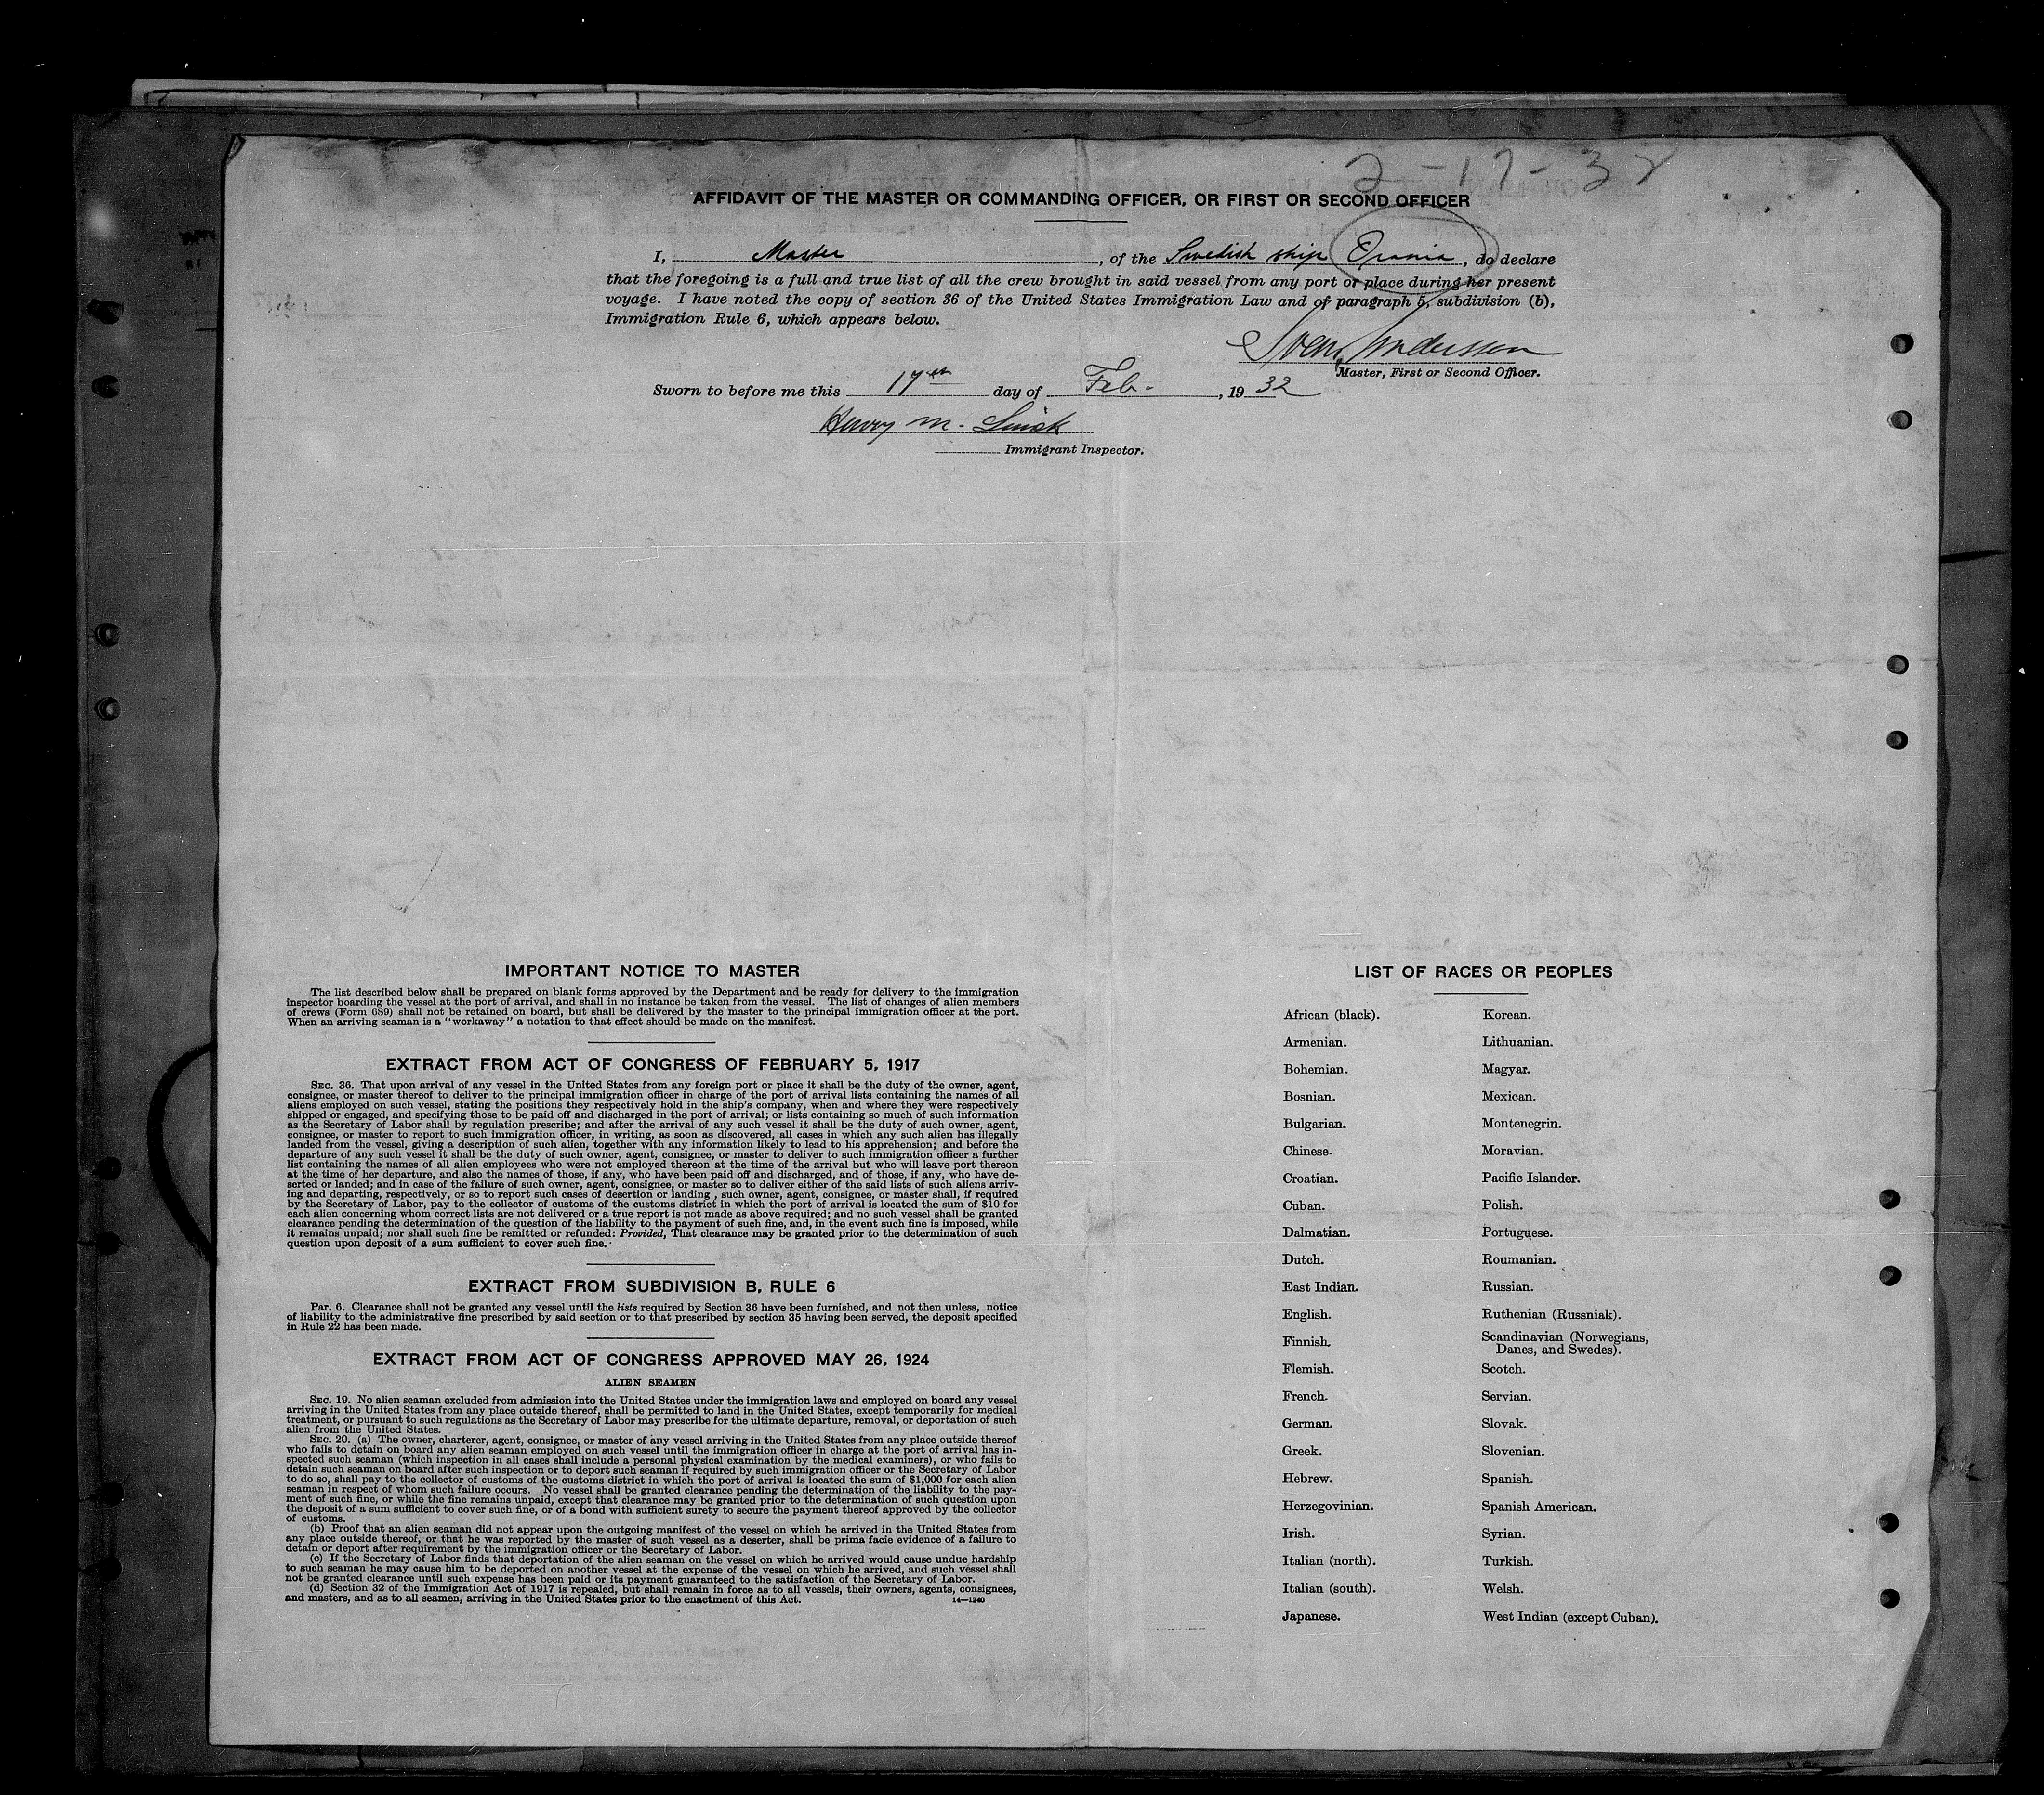 2-17-32
AFFIDAVIT OF THE MASTER OR COMMANDING OFFICER, OR FIRST OR SECOND OFFICER
I, Master, of the Swedish ship Orania, do declare
that the foregoing is a full and true list of all the crew brought in said vessel from any port or place during her present
voyage. I have noted the copy of section 36 of the United States Immigration Law and of paragraph 5, subdivision (b),
Immigration Rule 6, which appears below.
Sven Andersson
Master, First or Second Officer.
Sworn to before me this 17th day of Feb., 1932
Henry M.
Immigrant Inspector.
IMPORTANT NOTICE TO MASTER
The list described below shall be prepared on blank forms approved by the Department and be ready for delivery to the immigration
inspector boarding the vessel at the port of arrival, and shall in no instance be taken from the vessel. The list of changes of alien members
of crews (Form 689) shall not be retained on board, but shall be delivered by the master to the principal immigration officer at the port.
When an arriving seaman is a "workaway" a notation to that effect should be made on the manifest.
EXTRACT FROM ACT OF CONGRESS OF FEBRUARY 5, 1917
SEC. 36. That upon arrival of any vessel in the United States from any foreign port or place it shall be the duty of the owner, agent,
consignee, or master thereof to deliver to the principal immigration officer in charge of the port of arrival lists containing the names of all
aliens employed on such vessel, stating the positions they respectively hold in the ship's company, when and where they were respectively
shipped or engaged, and specifying those to be paid off and discharged in the port of arrival; or lists containing so much of such information
as the Secretary of Labor shall by regulation prescribe; and after the arrival of any such vessel it shall be the duty of such owner, agent,
consignee, or master to report to such immigration officer, in writing, as soon as discovered, all cases in which any such alien has illegally
landed from the vessel, giving a description of such alien, together with any information likely to lead to his apprehension; and before the
departure of any such vessel it shall be the duty of such owner, agent, consignee, or master to deliver to such immigration officer a further
list containing the names of all alien employees who were not employed thereon at the time of the arrival but who will leave port thereon
at the time of her departure, and also the names of those, if any, who have been paid off and discharged, and of those, if any, who have de-
serted or landed; and in case of the failure of such owner, agent, consignee, or master so to deliver either of the said lists of such aliens arriv-
ing and departing, respectively, or so to report such cases of desertion or landing, such owner, agent, consignee, or master shall, if required
by the Secretary of Labor, pay to the collector of customs of the customs district in which the port of arrival is located the sum of $10 for
each alien concerning whom correct lists are not delivered or a true report is not made as above required; and no such vessel shall be granted
clearance pending the determination of the question of the liability to the payment of such fine, and, in the event such fine is imposed, while
it remains unpaid; nor shall such fine be remitted or refunded: Provided, That clearance may be granted prior to the determination of such
question upon deposit of a sum sufficient to cover such fine.
EXTRACT FROM SUBDIVISION B, RULE 6
Par. 6. Clearance shall not be granted any vessel until the lists required by Section 36 have been furnished, and not then unless, notice
of liability to the administrative fine prescribed by said section or to that prescribed by section 35 having been served, the deposit specified
in Rule 22 has been made.
EXTRACT FROM ACT OF CONGRESS APPROVED MAY 26, 1924
ALIEN SEAMEN
SEC. 19. No alien seaman excluded from admission into the United States under the immigration laws and employed on board any vessel
arriving in the United States from any place outside thereof, shall be permitted to land in the United States, except temporarily for medical
treatment, or pursuant to such regulations as the Secretary of Labor may prescribe for the ultimate departure, removal, or deportation of such
alien from the United States.
SEC. 20. (a) The owner, charterer, agent, consignee, or master of any vessel arriving in the United States from any place outside thereof
who fails to detain on board any alien seaman employed on such vessel until the immigration officer in charge at the port of arrival has in-
spected such seaman (which inspection in all cases shall include a personal physical examination by the medical examiners), or who fails to
detain such seaman on board after such inspection or to deport such seaman if required by such immigration officer or the Secretary of Labor
to do so, shall pay to the collector of customs of the customs district in which the port of arrival is located the sum of $1,000 for each alien
seaman in respect of whom such failure occurs. No vessel shall be granted clearance pending the determination of the liability to the pay-
ment of such fine, or while the fine remains unpaid, except that clearance may be granted prior to the determination of such question upon
the deposit of a sum sufficient to cover such fine, or of a bond with sufficient surety to secure the payment thereof approved by the collector
of customs.
(b) Proof that an alien seaman did not appear upon the outgoing manifest of the vessel on which he arrived in the United States from
any place outside thereof, or that he was reported by the master of such vessel as a deserter, shall be prima facie evidence of a failure to
detain or deport after requirement by the immigration officer or the Secretary of Labor.
(c) If the Secretary of Labor finds that deportation of the alien seaman on the vessel on which he arrived would cause undue hardship
to such seaman he may cause him to be deported on another vessel at the expense of the vessel on which he arrived, and such vessel shall
not be granted clearance until such expense has been paid or its payment guaranteed to the satisfaction of the Secretary of Labor.
(d) Section 32 of the Immigration Act of 1917 is repealed, but shall remain in force as to all vessels, their owners, agents, consignees,
and masters, and as to all seamen, arriving in the United States prior to the enactment of this Act.
14—1240
LIST OF RACES OR PEOPLES
African (black).
Armenian.
Bohemian.
Bosnian.
Bulgarian.
Chinese.
Croatian.
Cuban.
Dalmatian.
Dutch.
East Indian.
English.
Finnish.
Flemish.
French.
German.
Greek.
Hebrew.
Herzegovinian.
Irish.
Italian (north).
Italian (south).
Japanese.
Korean.
Lithuanian.
Magyar.
Mexican.
Montenegrin.
Moravian.
Pacific Islander.
Polish.
Portuguese.
Roumanian.
Russian.
Ruthenian (Russniak).
Scandinavian (Norwegians,
Danes, and Swedes).
Scotch.
Servian.
Slovak.
Slovenian.
Spanish.
Spanish American.
Syrian.
Turkish.
Welsh.
West Indian (except Cuban).